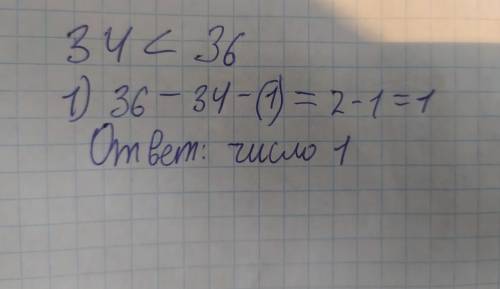 34 < 36
1) 36 - 34 - (1) = 2 - 1 = 1
Ответ: число 1